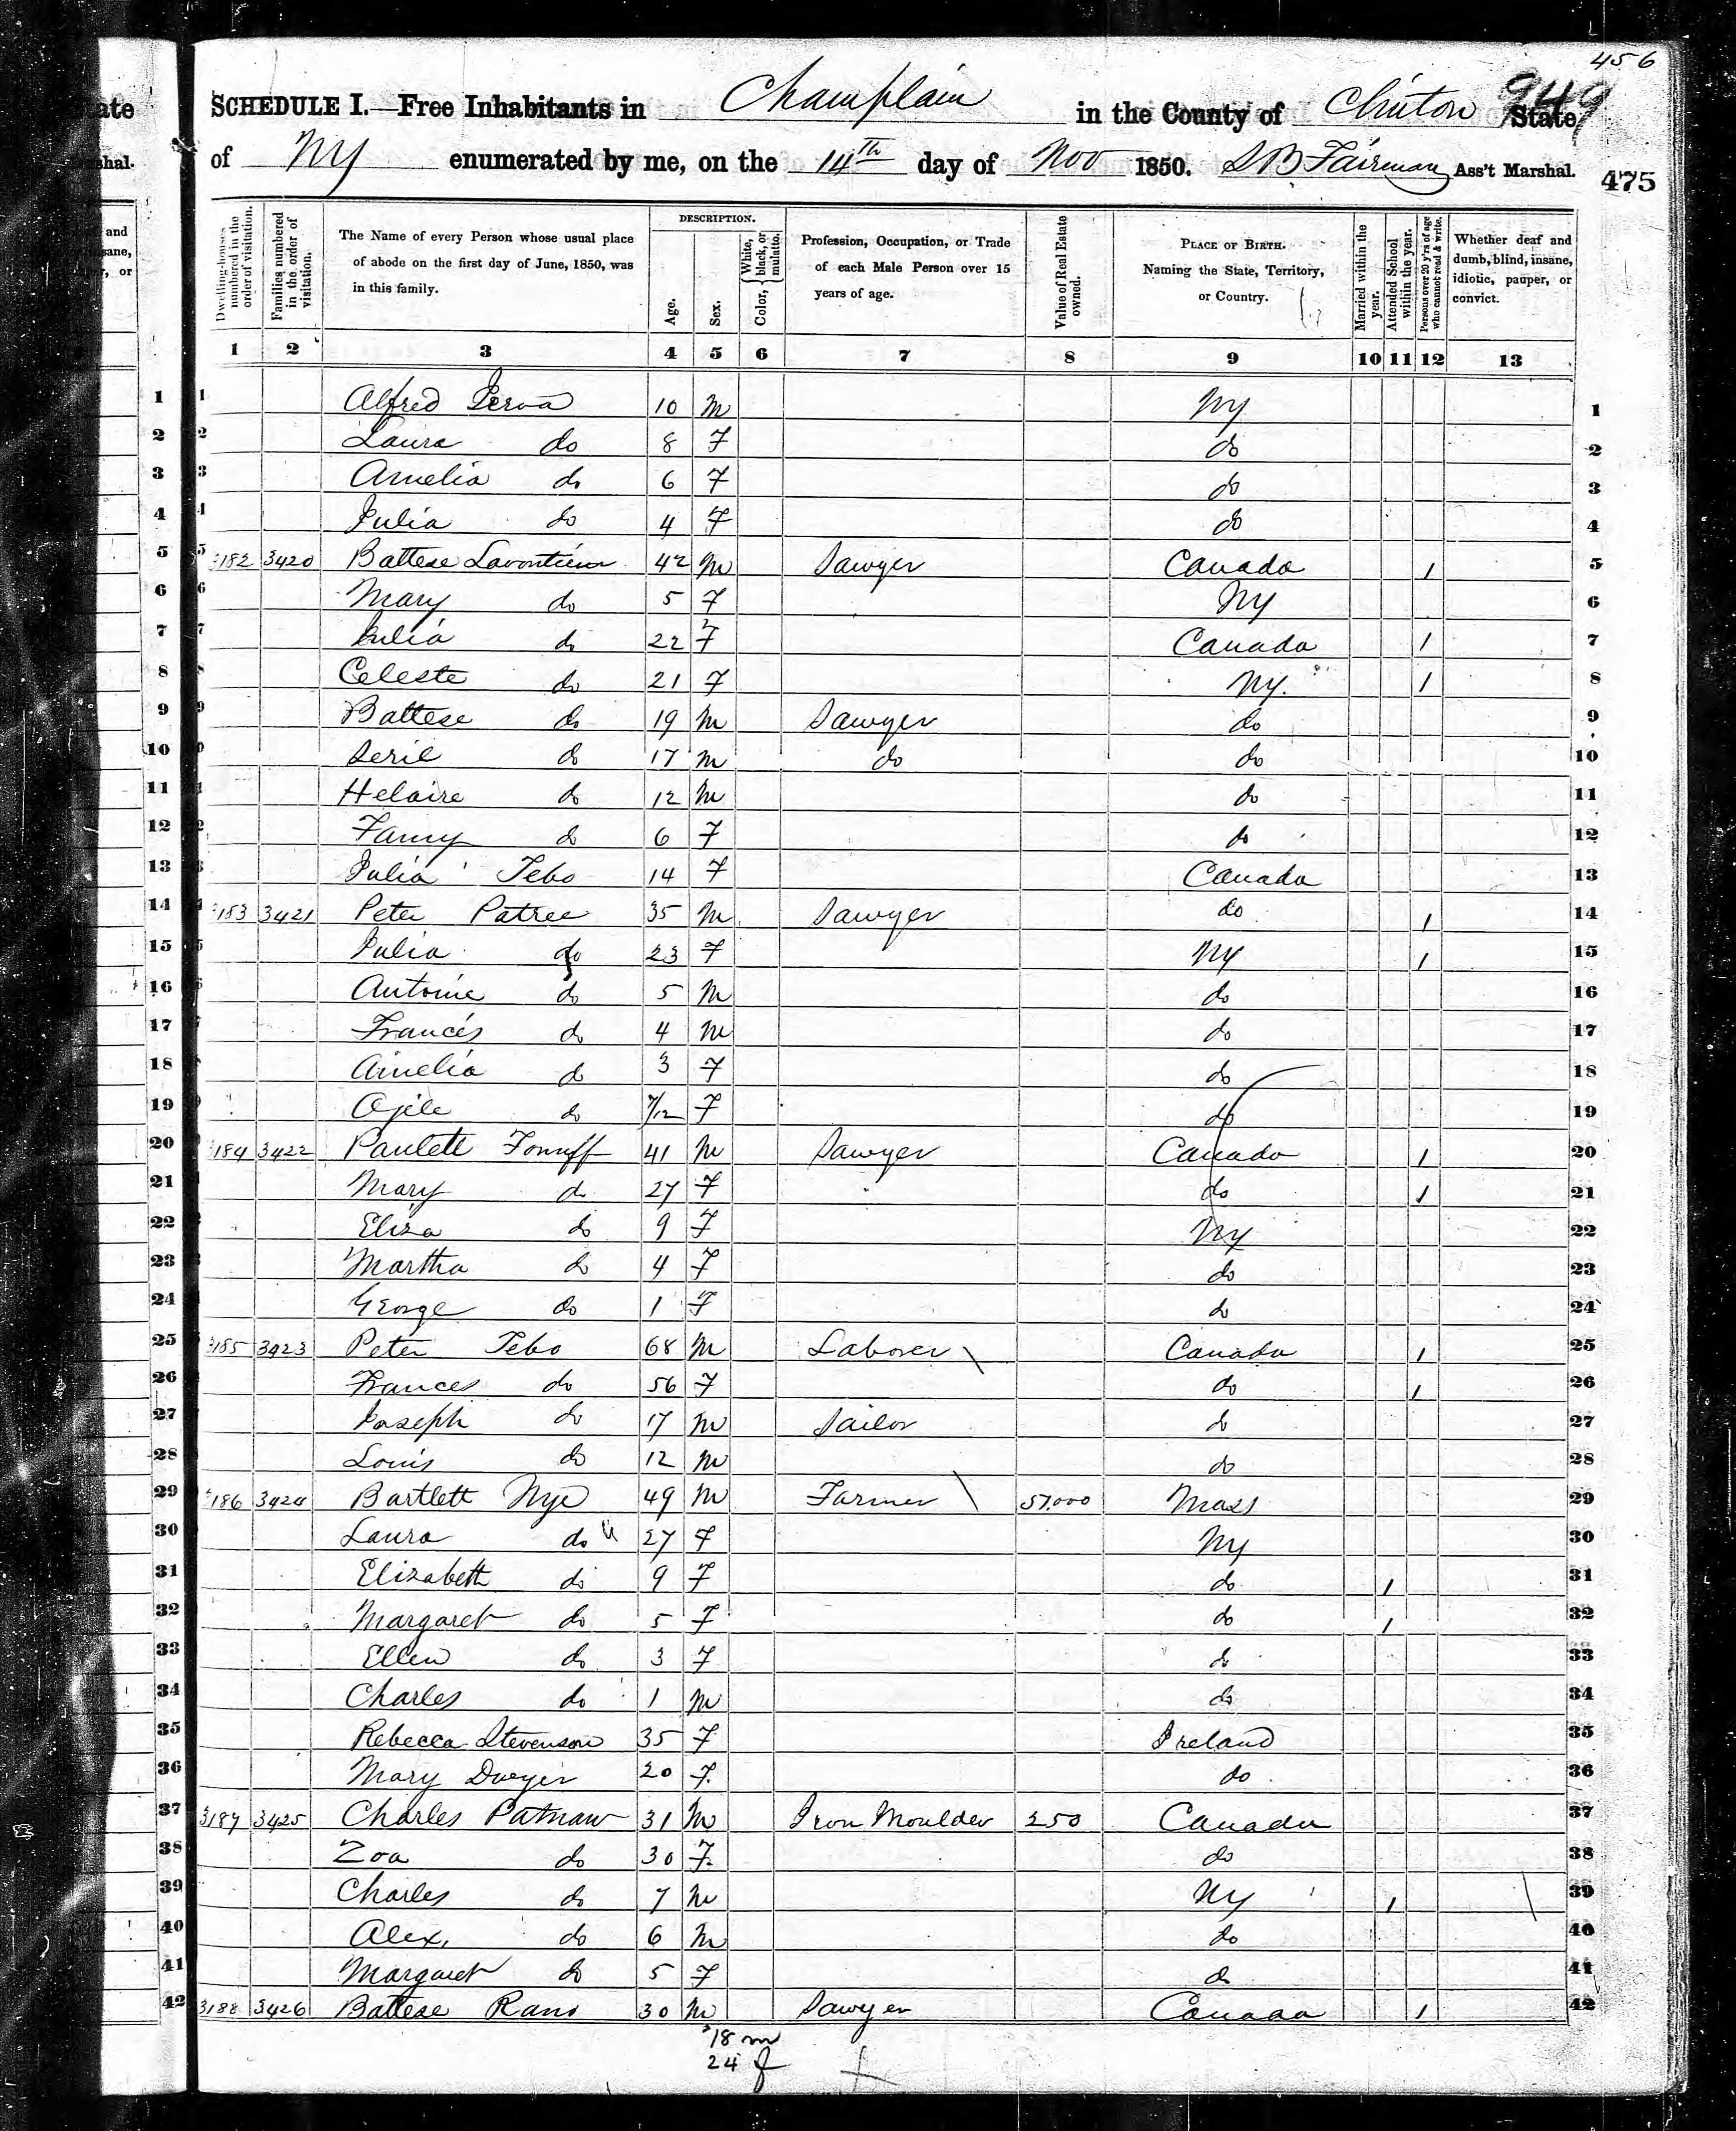 456
SCHEDULE I.—Free Inhabitants in Champlain in the County of Clinton State 949
of NY enumerated by me, on the 14th day of Nov 1850. S B Fairman Ass't Marshal. 475
Dwelling-houses numbered in the order of visitation.
Families numbered in the order of visitation.
The Name of every Person whose usual place of abode on the first day of June, 1850, was in this family.
DESCRIPTION.
Age.
Sex.
Color, White, black, or mulatto.
Profession, Occupation, or Trade of each Male Person over 15 years of age.
Value of Real Estate owned.
PLACE OF BIRTH. Naming the State, Territory, or Country.
Married within the year.
Attended School within the year.
Persons over 20 y'rs of age who cannot read & write.
Whether deaf and dumb, blind, insane, idiotic, pauper, or convict.
1 2 3 4 5 6 7 8 9 10 11 12 13
1 Alfred 10 M NY 1
2 Laura do 8 F do 2
3 Amelia do 6 F do 3
4 Julia do 4 F do 4
5 3182 3420 Battese 42 M Sawyer Canada / 5
6 Mary do 5 F NY 6
7 Julia do 22 F Canada / 7
8 Celeste do 21 F NY. / 8
9 Battese do 19 M Sawyer do 9
10 Seril do 17 M do do 10
11 Helaire do 12 M do 11
12 Fanny do 6 F do 12
13 Julia Tebo 14 F Canada 13
14 3183 3421 Peter Patree 35 M Sawyer do / 14
15 Julia do 23 F NY / 15
16 Antoine do 5 M do 16
17 Francis do 4 M do 17
18 Amelia do 3 F do 18
19 do 7/12 F do 19
20 3184 3422 Paulett 41 M Sawyer Canada / 20
21 Mary do 27 F do / 21
22 Eliza do 9 F NY 22
23 Martha do 4 F do 23
24 George do 1 F do 24
25 3185 3423 Peter Tebo 68 M Laborer Canada / 25
26 Frances do 56 F do / 26
27 Joseph do 17 M Sailor do 27
28 Louis do 12 M do 28
29 3186 3424 Bartlett Nye 49 M Farmer 57.000 Mass 29
30 Laura do 27 F NY 30
31 Elizabeth do 9 F do / 31
32 Margaret do 5 F do / 32
33 Ellen do 3 F do 33
34 Charles do 1 M do 34
35 Rebecca Stevenson 35 F Ireland 35
36 Mary Dwyer 20 F. do 36
37 3187 3425 Charles Patnaw 31 M Iron Moulder 250 Canada 37
38 Zoa do 30 F. do 38
39 Charles do 7 M NY / 39
40 Alex, do 6 M do 40
41 Margaret do 5 F do 41
42 3188 3426 Battese Rano 30 M Sawyer Canada / 42
18 m
24 f